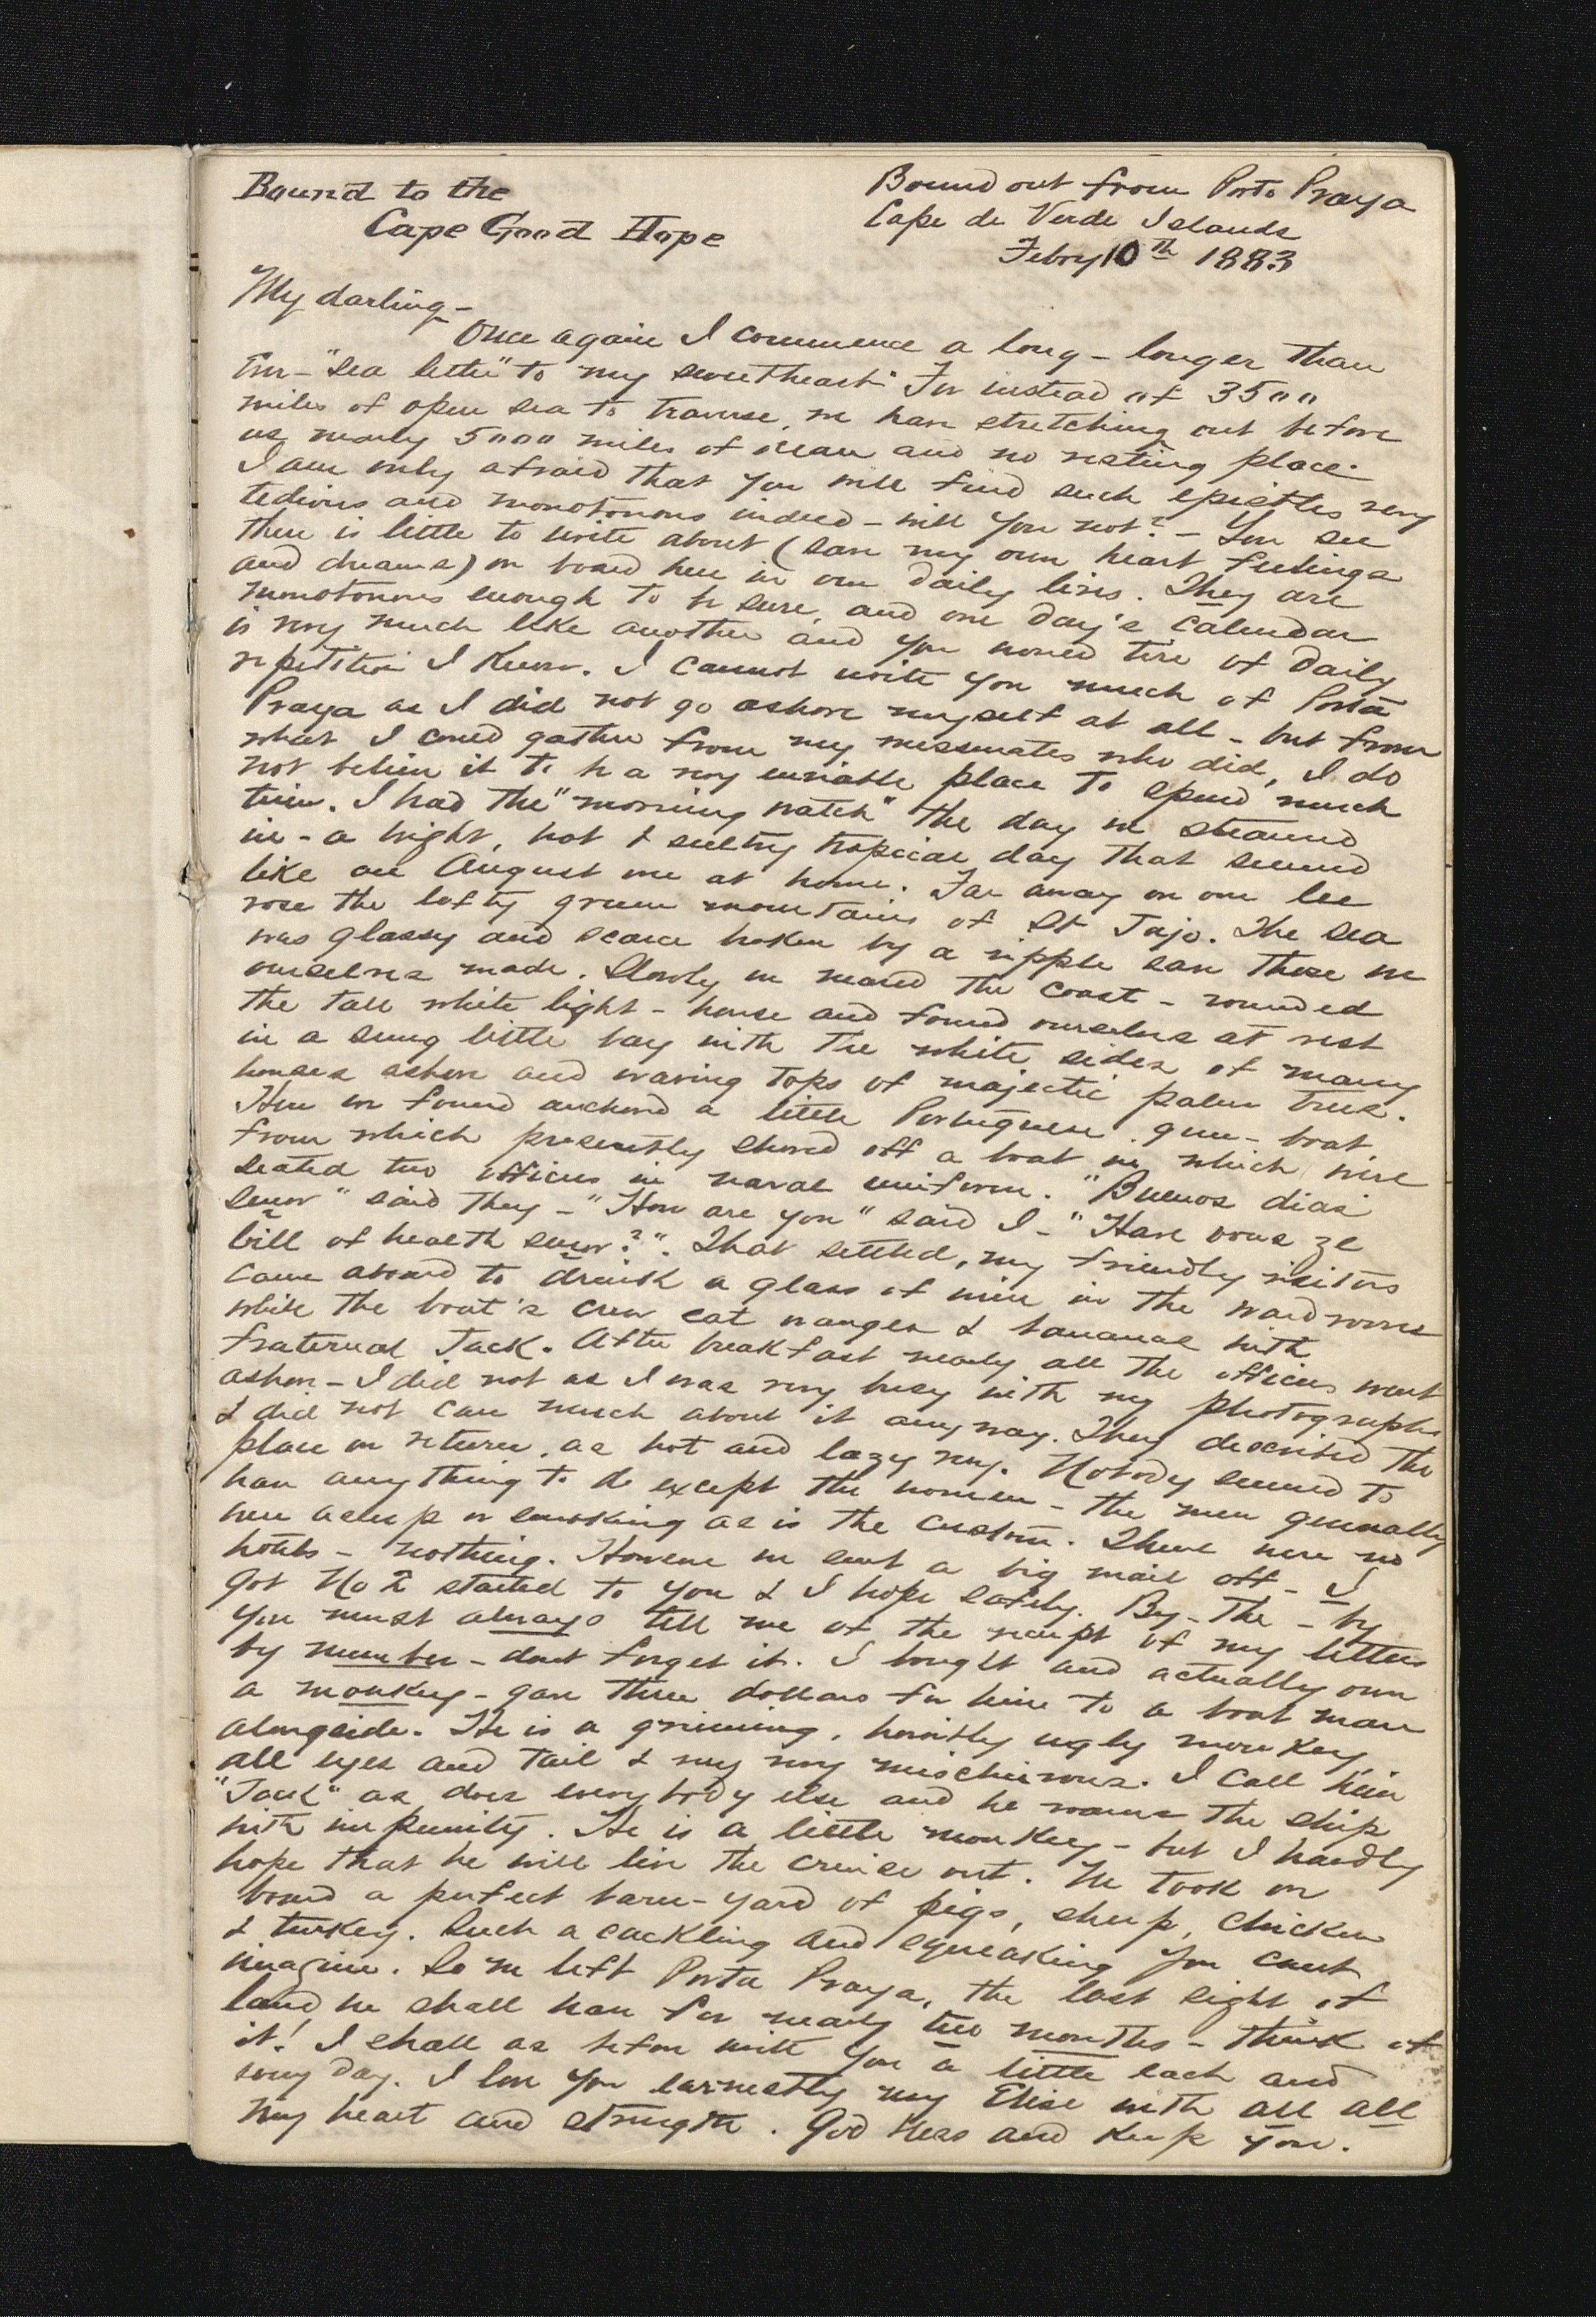 Bound to the
Cape Good Hope
Bound out from Porto Praya
Cape de Verde Islands
Febry 10th 1883
My darling-
Once again I commence a long - longer than
Ever - "Sea letter" to my sweetheart. For instead of 3500
miles of open sea to traverse, we have stretching out before
us nearly 5000 miles of ocean and no resting place.
I am only afraid that you will find such epistles very
tedious and monotonous indeed - will you not? - You see
there is little to write about (save my own heart feelings
and dreams) on board here in our daily lives. They are
monotonous enough to be sure, and one day's calendar
is very much like another and you would tire of daily
repetition I know. I cannot write you much of Porta
Praya as I did not go ashore myself at all - but from
what I could gather from my messmates who did, I do
not believe it to be a very enviable place to spend much
time. I had the "morning watch" the day we steamed
in - a bright, hot & sultry tropical day that seemed
like an August one at home. Far away on our lee
rose the lofty green mountains of St Jago. The sea
was glassy and scarce broken by a ripple save those we
ourselves made. Slowly we neared the coast - rounded
the tall white light-house and found ourselves at rest
in a snug little bay with the white sides of many
houses ashore and waving tops of majestic palm trees.
Here we found anchored a little Portuguese gun-boat
from which presently shoved off a boat in which were
seated two officers in naval uniform. "Buenos dias
senor" said they - "How are you" said I - "Have vous ze
bill of health senor?". That settled, my friendly visitors
came aboard to drink a glass of wine in the wardroom
while the boat's crew eat oranges & bananas with
fraternal Jack. After breakfast nearly all the officers went
ashore - I did not as I was very busy with my photographs
& did not care much about it anyway. They described the
place on return, as hot and lazy very. Nobody seemed to
have anything to do except the women - the men generally
were asleep or smoking as is the custom. There were no
hotels - nothing. However we sent a big mail off - I
got No 2 started to you & I hope safely. By-the-by
you must always tell me of the receipt of my letters
by number - dont forget it. I bought and actually own
a monkey - gave three dollars for him to a boat man
alongside. He is a grinning, horribly ugly monkey,
all eyes and tail & very very mischievous. I call him
"Jack" as does everybody else and he roams the ship
with impunity. He is a little monkey - but I hardly
hope that he will live the cruise out. We took on
board a perfect barn-yard of pigs, sheep, chicken
& turkey. Such a cackling and squeaking you cant
imagine. So we left Porta Praya, the last sight of
land we shall have for nearly two months - think of
it! I shall as before write you a little each and
every day. I love you earnestly my Elise with all all
my heart and strength. God bless and keep you.